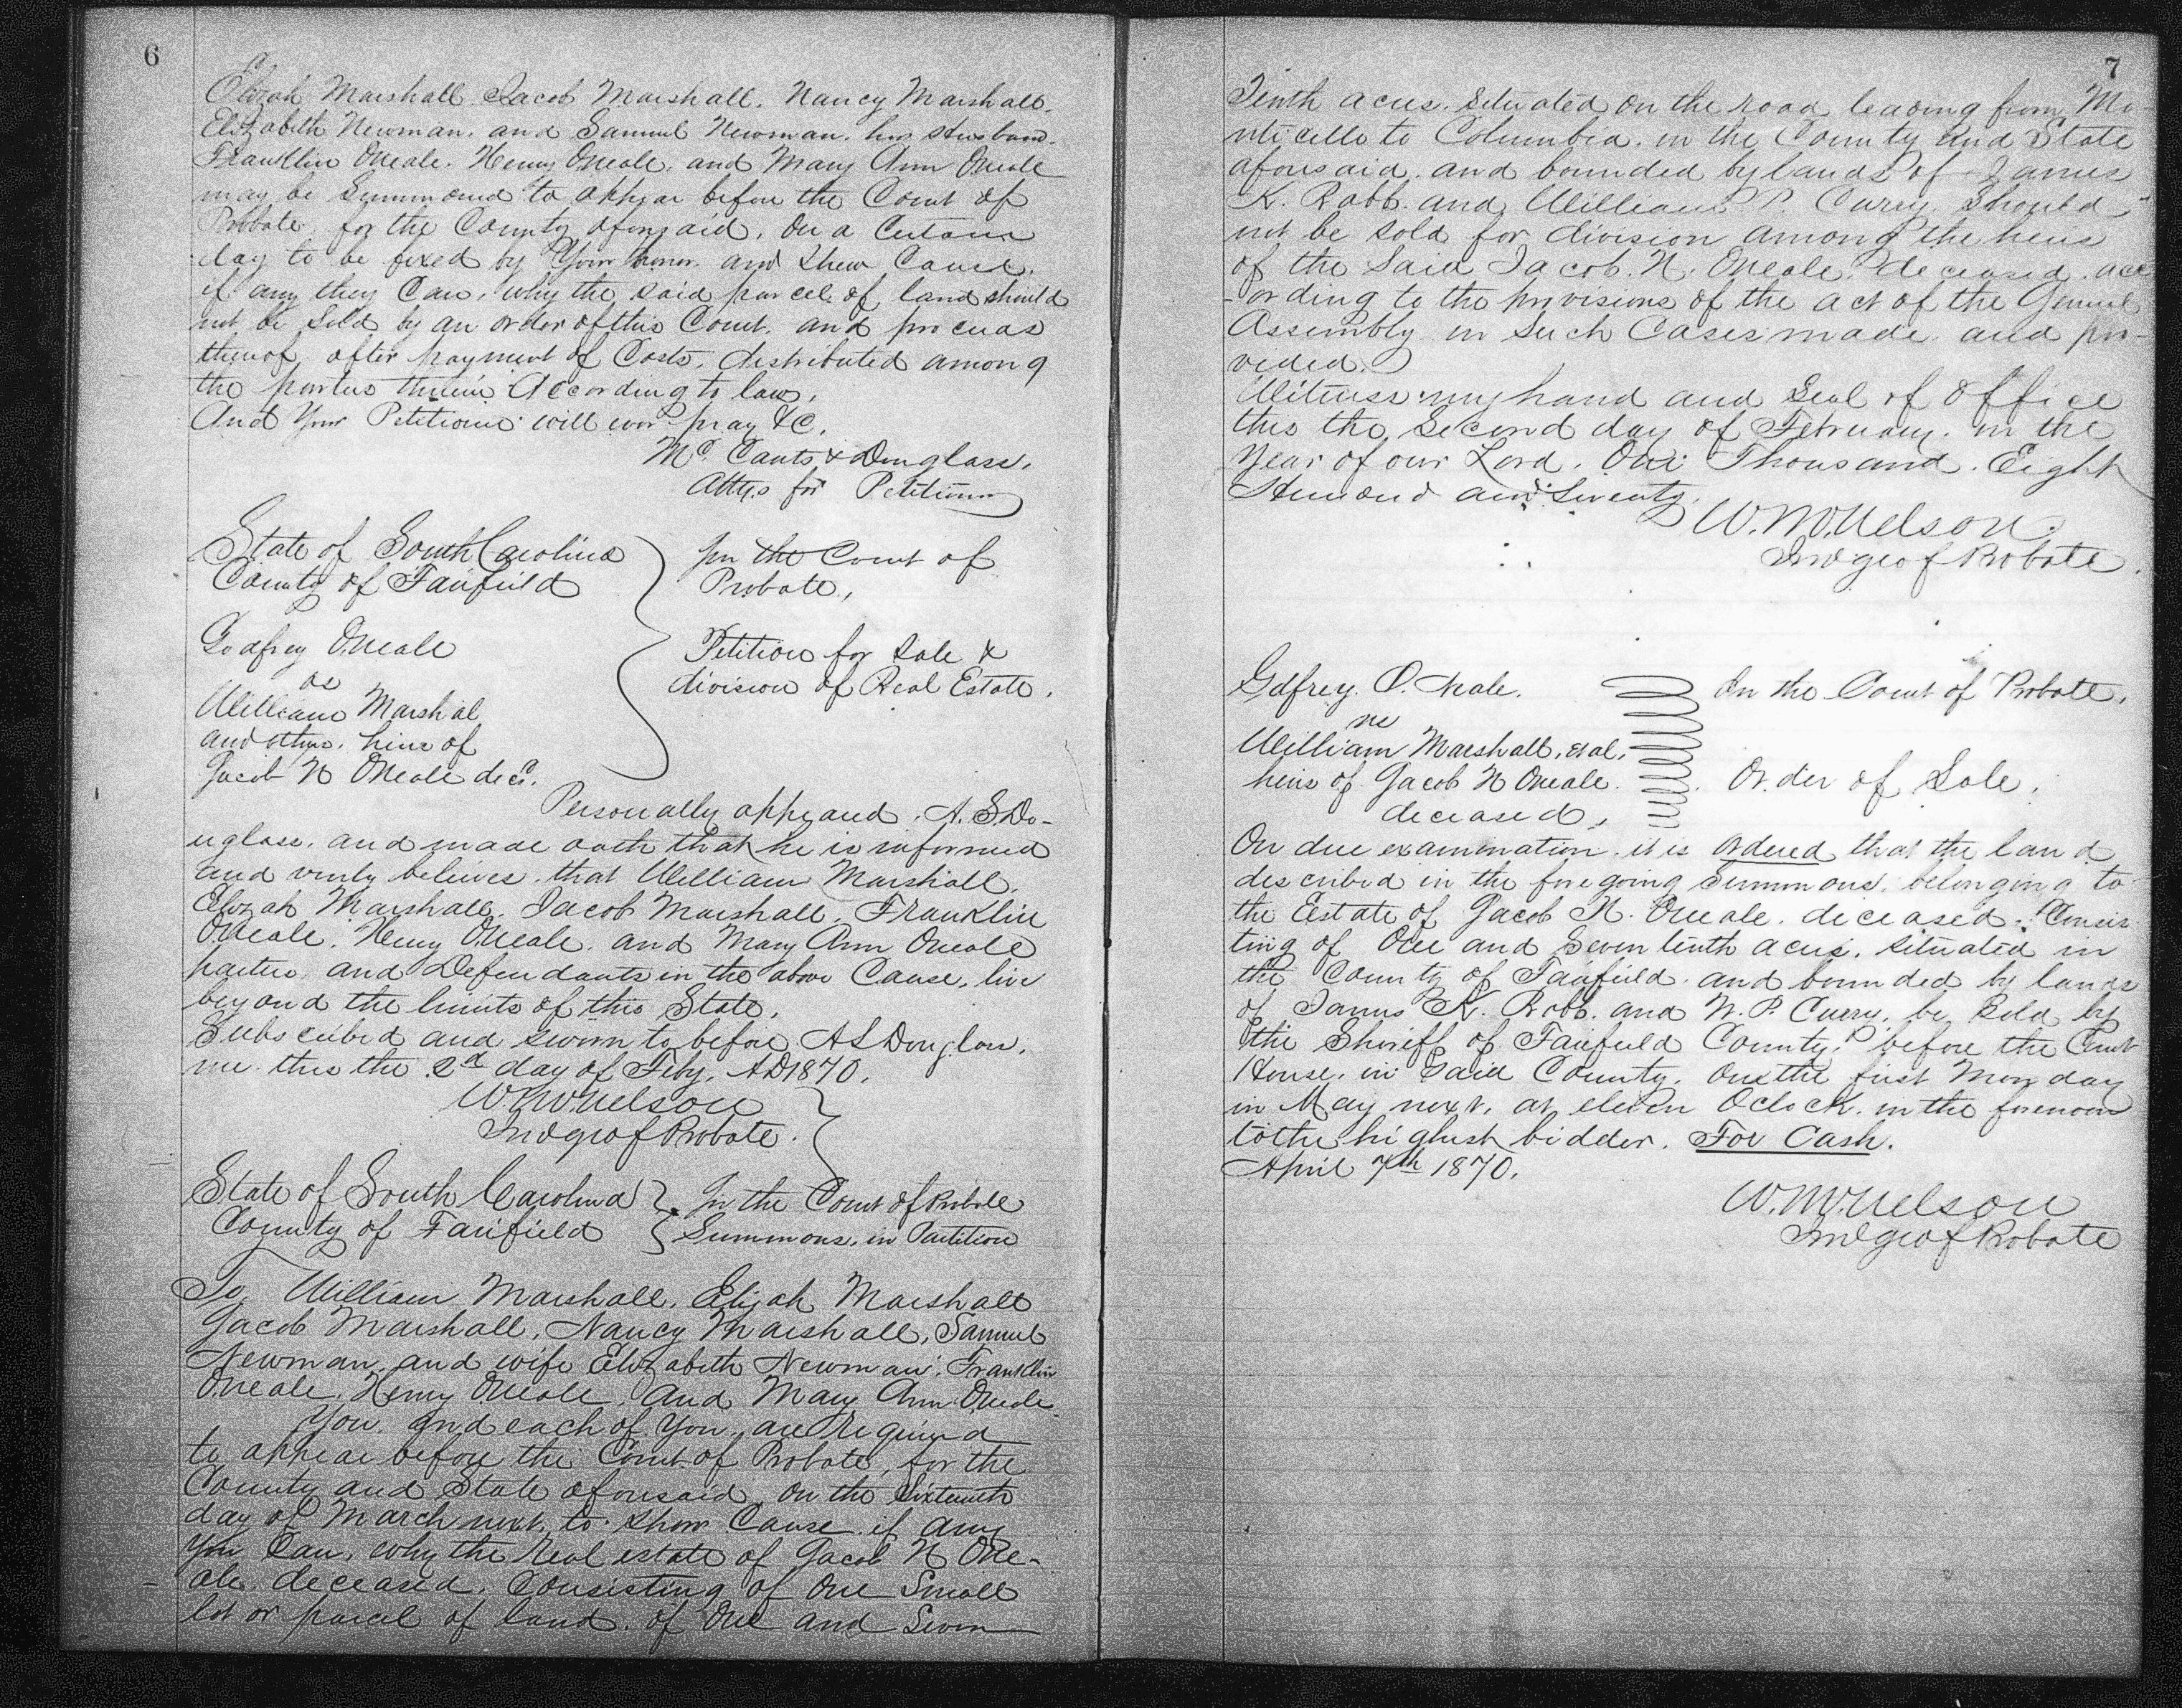 6
Elizah Marshall Jacob Marshall. Nancy Marshall.
Elizabeth Newman. and Samuel Newman. her Husband.
Franklin ONeale. Henry ONeale. and Mary Ann ONeale
may be Summoned to appear before the Court of
Probate, for the County aforesaid. on a Certain
day to be fixed by Your honor. and Shew Cause.
if any they Can, why the said parcel of land should
not be Sold by an order of this Court. and proceeds
thereof after payment of Costs, distributed among
the parties therein According to law.
And Your Petitioner will ever pray &C.
McCants & Douglass.
Attys for Petitioner
State of South Carolina
County of Fairfield
In the Court of
Probate,
Godfrey ONeale
vs
William Marshal
and others. heirs of
Jacob N ONeale decd.
Petition for Sale &
division of Real Estate.
Personally appeared. A. S. Do-
uglass. and made oath that he is informed
and verily believes. that William Marshall.
Elizah Marshall. Jacob Marshall. Franklin
ONeale. Henry ONeale. and Mary Ann ONeale
parties. and Defendants in the above Cause, live
beyond the limits of this State.
Subscribed and sworn to before A S Douglass.
me this the 2d day of Feby. AD 1870.
W. M. Nelson
Judge of Probate.
State of South Carolina
County of Fairfield
In the Court of Probate
Summons, in Partition
To, William Marshall. Elijah Marshall
Jacob Marshall, Nancy Marshall, Samuel
Newman. and wife Elizabeth Newman. Franklin
ONeale. Henry ONeale. and Mary Ann ONeale
You. and each of You. are required
to appear before the Court of Probate, for the
County and State aforesaid, on the Sixteenth
day of March next, to Show Cause if any
You Can, why the real estate of Jacob N ONe-
ale. deceased. Consisting of One Small
lot or parcel of land. of One and Seven
7
Tenth acres. Situated on the road leading from Mo-
nticello to Columbia. in the County and State
aforesaid. and bounded by lands of James
K. Robb. and William P. Curry. Should
not be sold for division among the heirs
of the Said Jacob. N. ONeale. deceased. acc
-ording to the provisions of the act of the General
Assembly in Such Cases made and pro-
vided.
Witness my hand and Seal of Office
this the Second day of February. in the
Year of our Lord. One Thousand. Eight
Hundred and Seventy.
W. M. Nelson.
Judge of Probate.
Godfrey. O. Neale.
vs
William Marshall, et al.
heirs of Jacob N ONeale.
deceased,
In the Court of Probate.
Order of Sale.
On due examination. it is Ordered that the land
described in the foregoing Summons. belonging to
the Estate of Jacob N. ONeale. deceased. Consis
ting of One and Seven tenth acres. situated in
the County of Fairfield. and bounded by lands
of James K. Robb. and W. P. Curry, be Sold by
the Sheriff of Fairfield County. before the Court
House. in Said County. on the first Monday
in May next, at eleven Oclock. in the forenoon
to the highest bidder. For Cash.
April 7th 1870.
W. M. Nelson
Judge of Probate